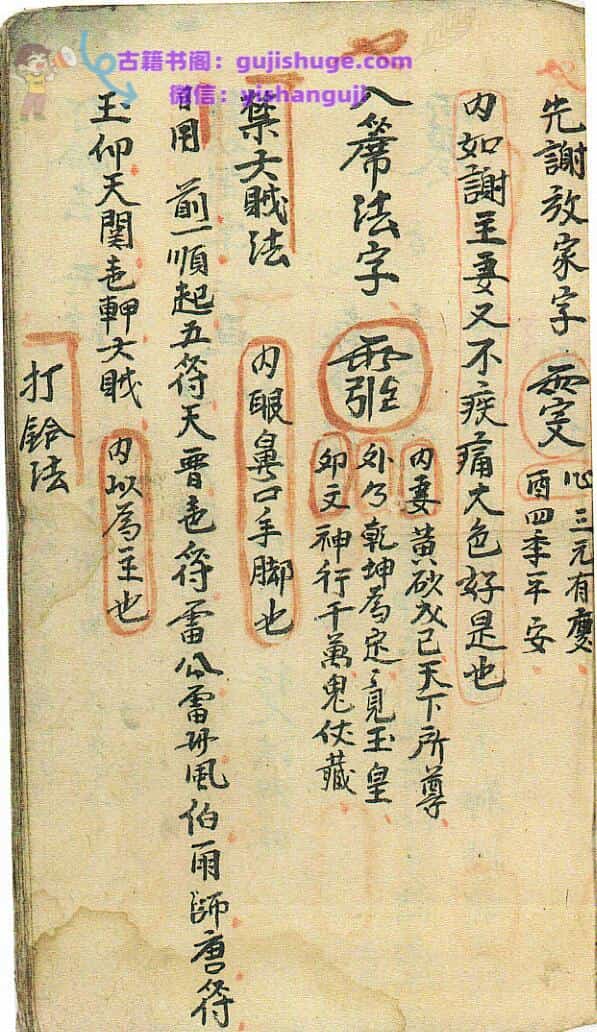 古籍书阁：gujishuge.com
微信：yishanguji
先謝放家字
心三元有慶
酉四季平安
内如謝主妻又不疾痛大色好是也
入席法字
内妻黃砂戊己天下所尊
外勹乾坤為定定覓玉皇
卯文神行千萬鬼伏藏
禁大賊法
内眼鼻口手脚也
日用 前一順起五符天晉走符雷公雷母風伯雨師唐符
玉仰天閣走軙大賊
内以為主也
打鈴法